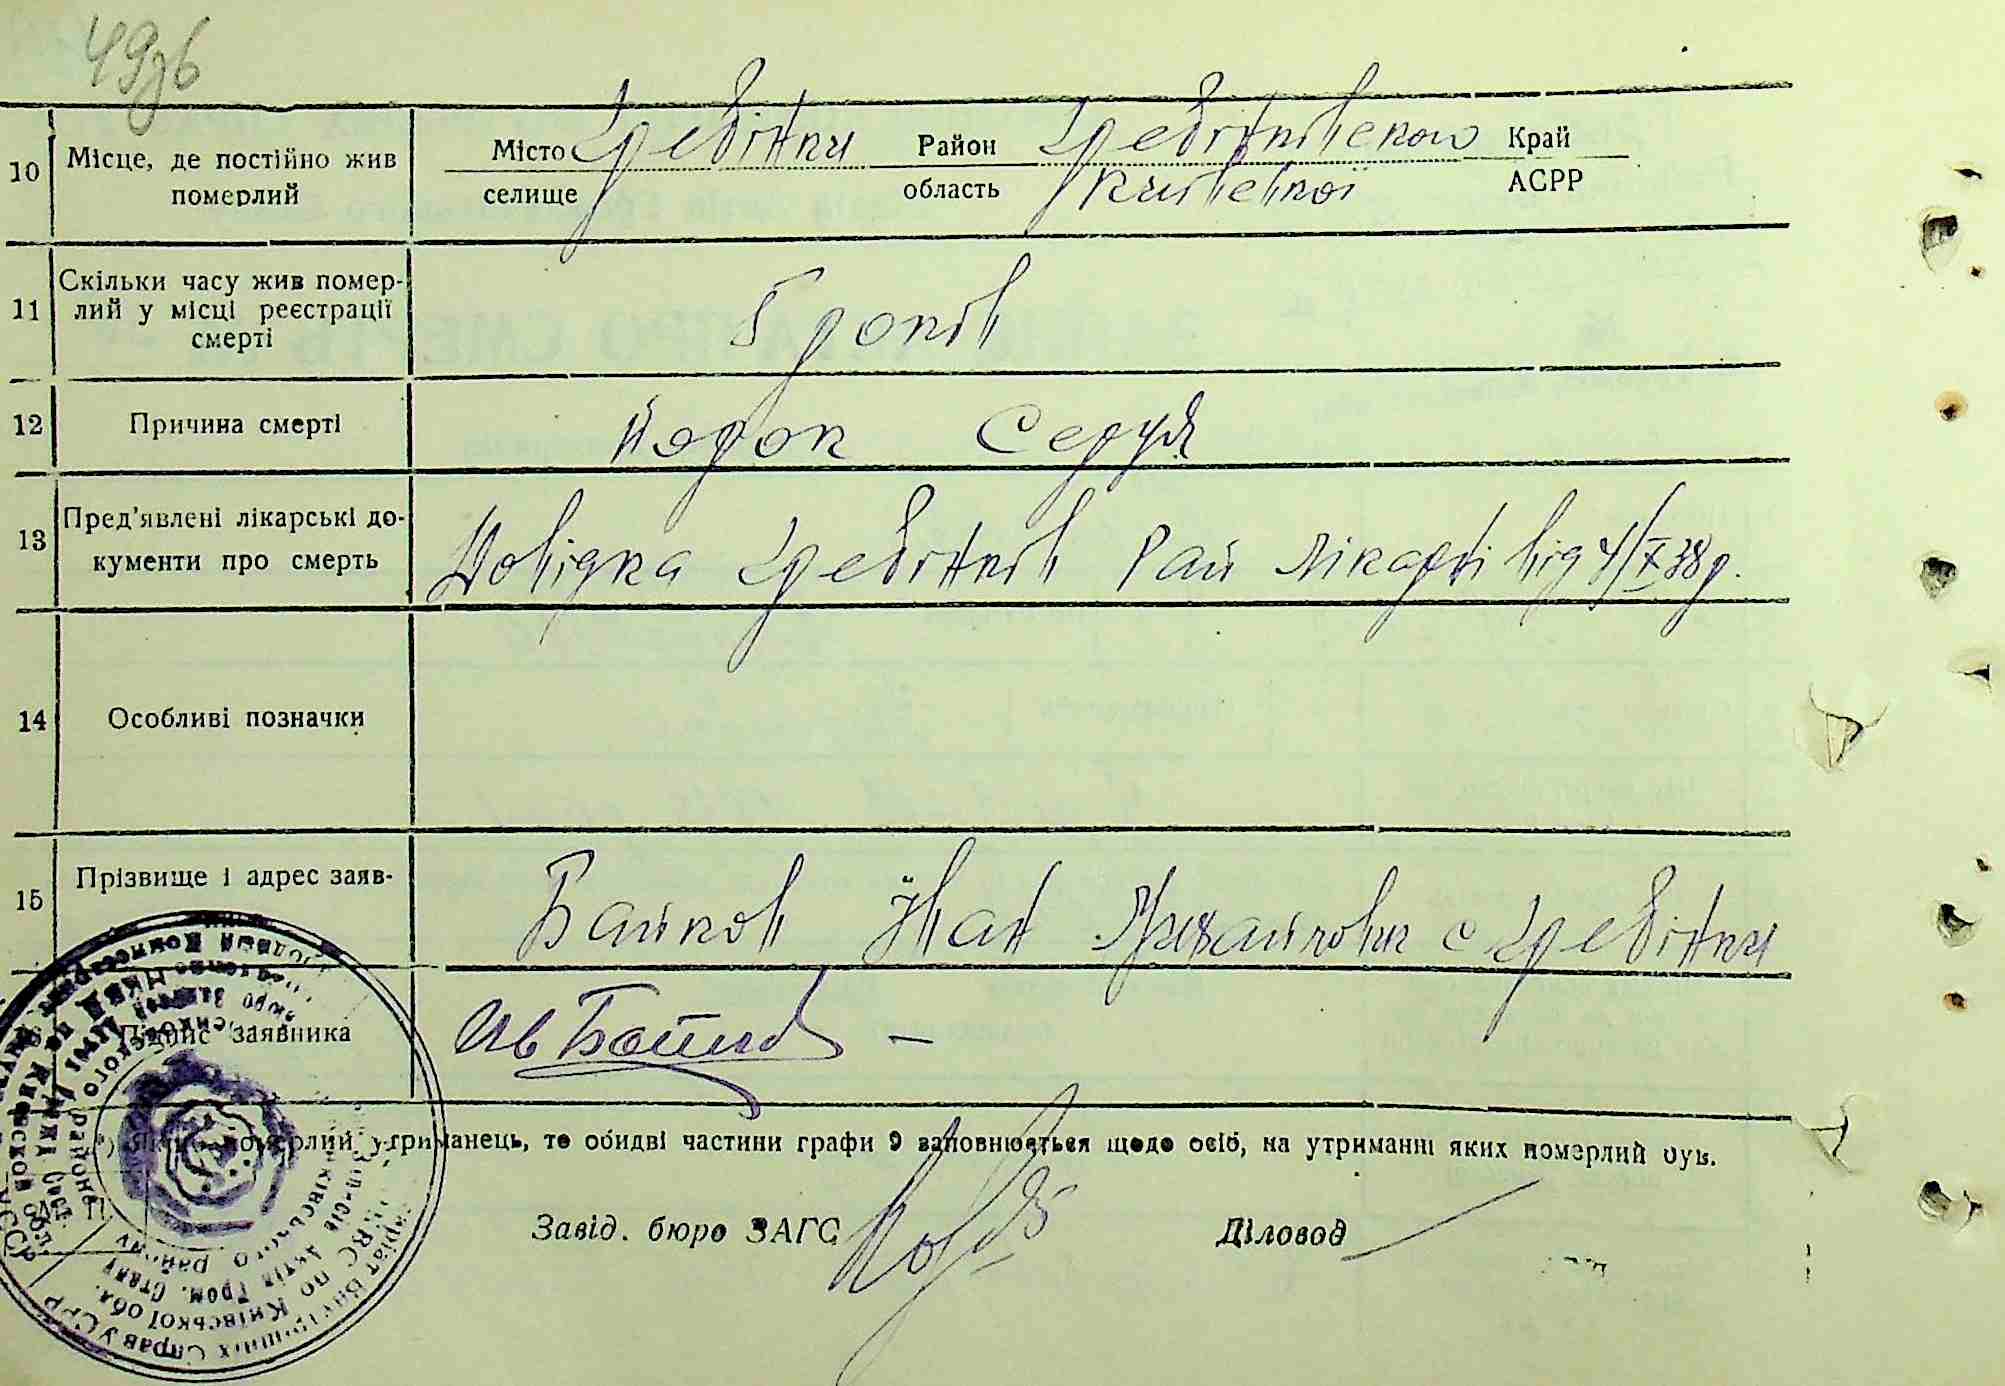 49зв
10 Місце, де постійно жив померлий
Місто Гребінки Район Гребінківського Край
селище область Київської АСРР
11 Скільки часу жив помер-
лий у місці реєстрації
смерті
років
12 Причина смерті
Порок Серця
13 Пред'явлені лікарські до-
кументи про смерть
Довідка Гребінків Рай лікарні від 4/X 38 р.
14 Особливі позначки
15 Прізвище і адрес заяв-
Байков Іван Михайлович с Гребінки
Підпис заявника
Ив Байков –
померлий утриманець, то обидві частини графи 9 заповнюється щодо осіб, на утриманні яких померлий був.
Завід. бюро ЗАГС
Діловод